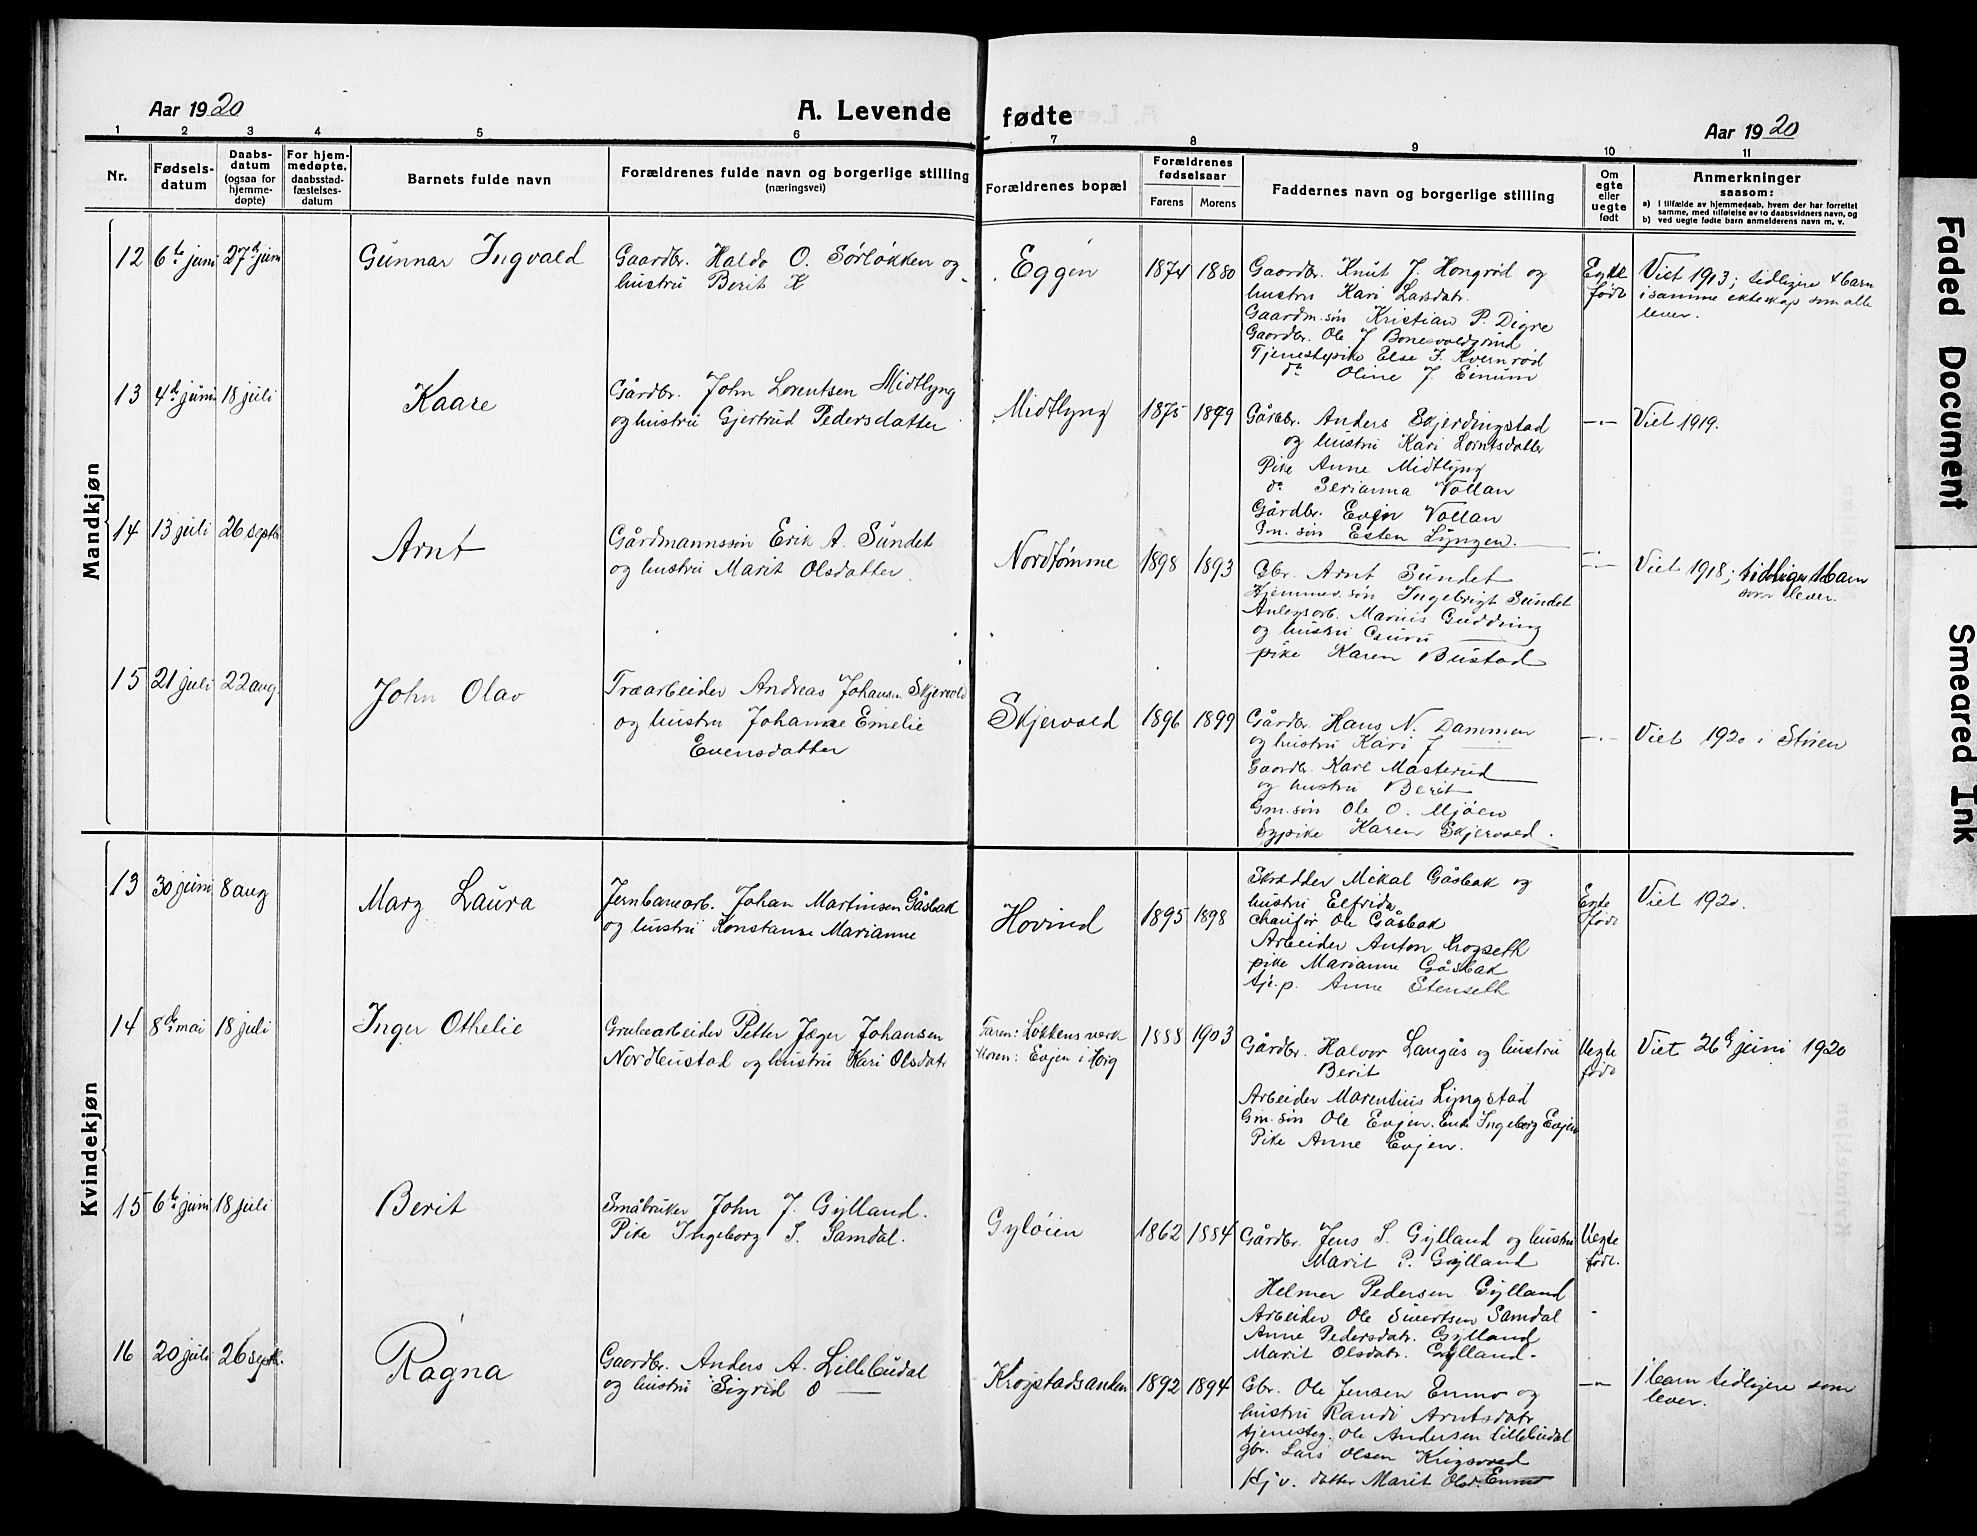 Aar 1920
A. Levende fødte
Aar 1920
1 2 3 4 5 6 7 8 9 10 11
Nr.
Fødsels-
datum
Daabs-
datum
(ogsaa for
hjemme-
døpte)
For hjem-
medøpte,
daabsstad-
fæstelses-
datum
Barnets fulde navn
Forældrenes fulde navn og borgerlige stilling
(næringsvei)
Forældrenes bopæl
Forældrenes
fødselsaar
Farens Morens
Faddernes navn og borgerlige stilling
Om
egte
eller
uegte
født
Anmerkninger
saasom:
a) I tilfælde av hjemmedaab, hvem der har forrettet
samme, med tilføielse av to daabsvidners navn, og
b) ved uegte fødte barn anmelderens navn m. v.
Mandkjøn
12 6te juni 27de juni
Gunnar Ingvald
Gaardbr. Haldo O. Sørløkken og
hustru Berit H
Eggen
1874 1880
Gaardbr. Knut J. Hongrød og
hustru Kari Larsdatr.
Gaardm.søn Kristian P. Digre
Gaardbr. Ole J
Tjenestepike Else J. Kvernrød
do Oline J. Einum
Egte
født
Viet 1913; tidligere 4 barn
i samme ekteskap som alle
lever.
13 4de juni 18 juli
Kaare
Gårdbr. John Lorentsen Midtlyng
og hustru Gjertrud Pedersdatter
Midtlyng
1875 1879
Gårdbr. Anders Skjerdingstad
og hustru Kari Lorntsdatter
Pike Anne Midtlyng
do Serianna Vollan
Gårdbr. Even Vollan
Gm. søn Esten Lyngen.
-·-
Viet 1919.
14 13 juli 26 septbr
Arnt
Gårdmannssøn Erik A. Sundet
og hustru Marit Olsdatter.
Nordtømme
1898 1893
Gbr. Arnt Sundet
Hjemmev. søn Ingebrigt Sundet
Anlegsarb. Marius Gudding
og hustru Guru
pike Karen Bustad
-·-
Viet 1918; tidliger 1 barn
som lever.
15 21 juli 22 aug.
John Olav
Træarbeider Andreas Johansen Skjervold
og hustru Johanne Emelie
Evensdatter
Skjervold
1896 1899
Gårdbr. Hans N. Dammen
og hustru Kari J
Gaardbr. Karl Mosterud
og hustru Berit
Gm. søn Ole O. Mjøen
Sypike Karen Skjervold.
-·-
Viet 1920 i Støren
Kvindekjøn
13 30 juni 8 aug
Mary Laura
Jernbanearb. Johan Martinsen Gåsbak
og hustru Konstanse Marianne
Hovind
1895 1898
Skrædder Mikal Gåsbak og
hustru Elfrida
chaufør Ole Gåsbak
Arbeider Anton Krogseth
pike Marianne Gåsbak
tje.p. Anne Stenseth
Egte
født
Viet 1920.
14 8de mai 18 juli
Inger Othelie
Grubearbeider Petter Jæger Johansen
Nordbustad og hustru Kari Olsdatr
Faren: Løkkens verk
Moren: Evjen i Horg
1888 1903
Gårdbr. Halvor Langås og hustru
Berit
Arbeider Marentius Lyngstad
Gm. søn Ole Evjen. Enke Ingeborg Evjen
Pike Anne Evjen.
Uegte
født
Viet 26de juni 1920
15 6te juni 18 juli
Berit
Småbruker John J. Gylland.
Pike Ingeborg S. Samdal.
Gyløien
1862 1884
Gårdbr. Jens S. Gylland og hustru
Marit P. Gylland
Helmer Pedersen Gylland
Arbeider Ole Sivertsen Samdal
Anne Pedersdatr. Gylland
Marit Olsdatr. Gylland
Uegte
født.
16 20 juli 26 septbr.
Ragna
Gaardbr. Anders A. Lillebudal
og hustru Sigrid O
Krogstadsanden
1892 1894
Gbr. Ole Jensen Enmo og
hustru Randi Arntsdatr
tjenesteg. Ole Andersen Lillebudal
gbr. Lars Olsen Krigsvold
Hj v. datter Marit Olsd. Enmo
-"-
1 barn tidligere som
lever.
Faded Document
Smeared Ink